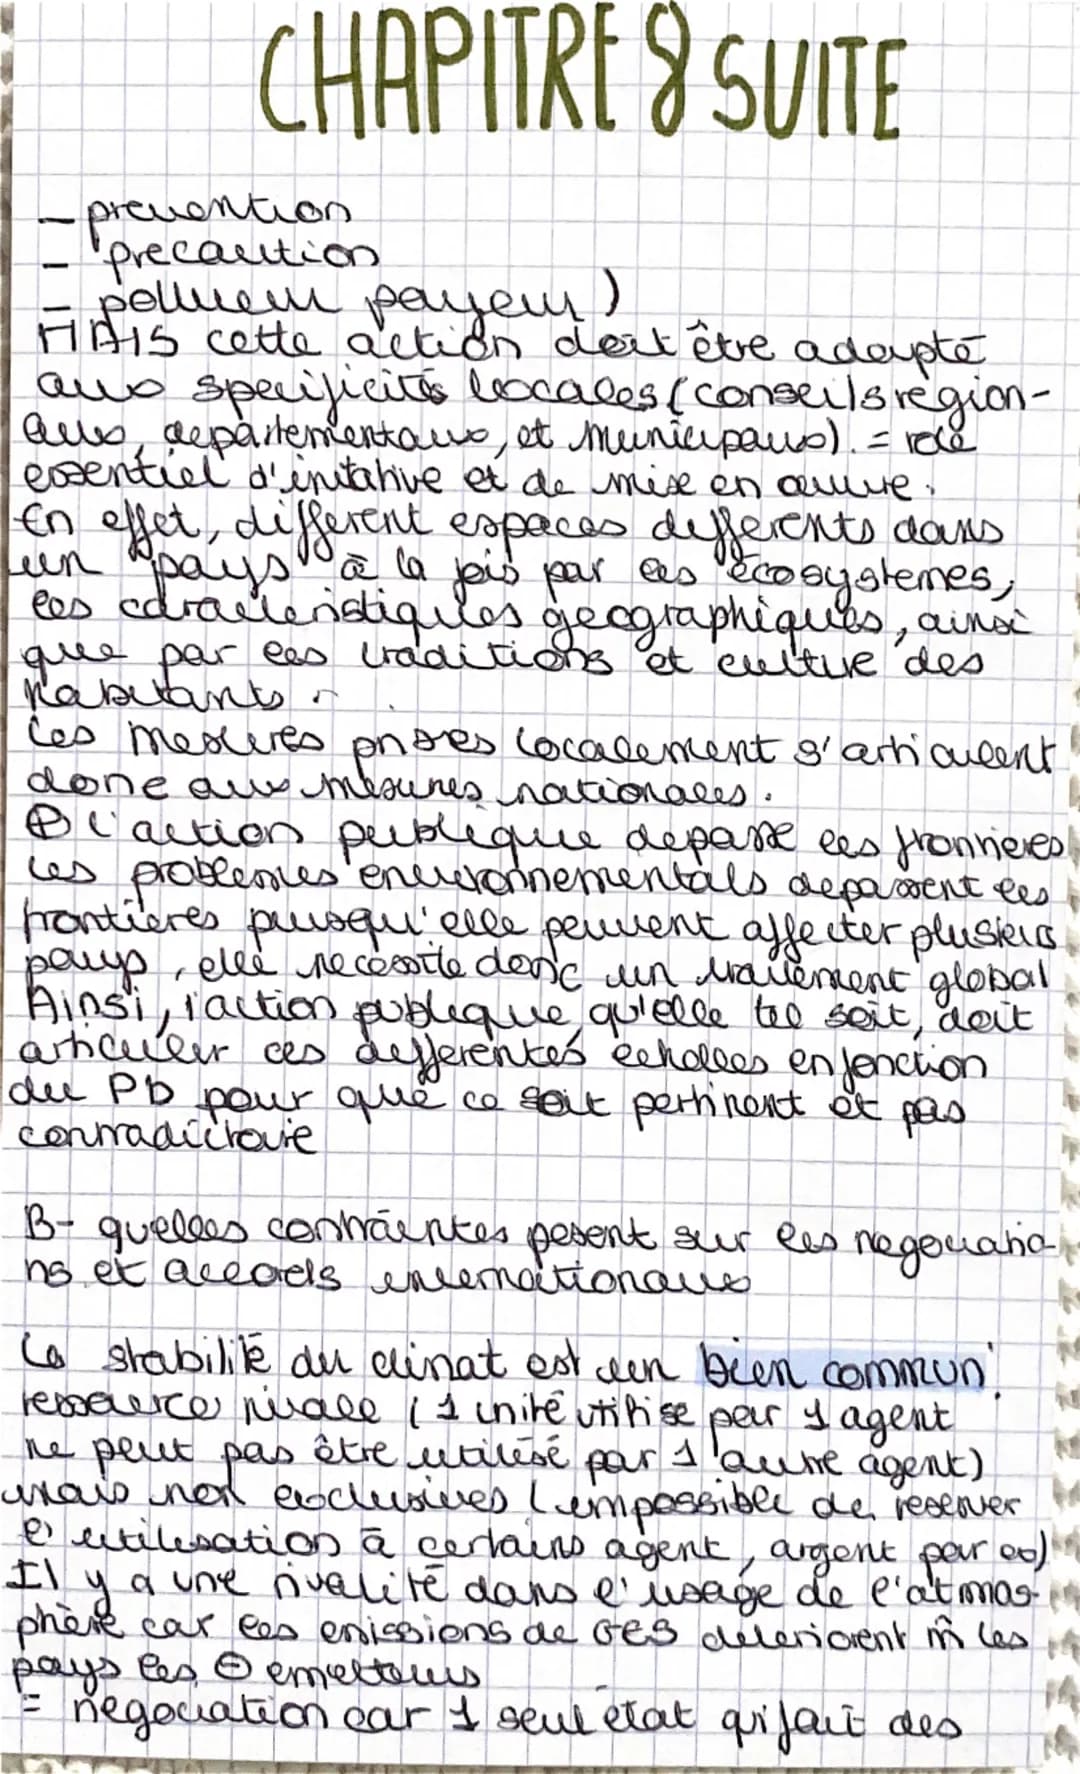 CHAPITRE 8 SUITE
- prevention
- precaution
- pollueur payeur)
MAIS cette action doit être adapté
aux specificités locales (conseils region-
aux, departementaux, et municipaux). = role
essentiel d'initative et de mise en œuvre.
En effet, different espaces differents dans
un pays à la fois par les écosystemes,
les caracteristiques geographiques, ainsi
que par les traditions et culture des
habitants.
Les mesures prises localement s'articulent
donc aux mesures nationales.
⊕ l'action publique depasse les fronrieres
Les problemes environnementals depassent les
frontieres puisqu'elle peuvent affecter plusieurs
pays, elle necessite donc un traitement global
Ainsi, l'action publique, qu'elle tel soit, doit
articuler ces differentes echelles en fonction
du PB pour que ce soit pertinent et pas
contradictoire
B- quelles contraintes pesent sur les negociatio-
ns et accords internationaux
La stabilité du climat est un bien commun:
ressource rivale (1 unité utilise par 1 agent
ne peut pas être utilisé par 1 autre agent)
mais non exclusives (impossible de reserver
l'utilisation à certains agent, argent par ex)
Il y a une rivalité dans l'usage de l'atmos-
phère car les emissions de GES deteriorent m̂ les
pays les ⊖ emetteurs
= negociation car 1 seul état qui fait des